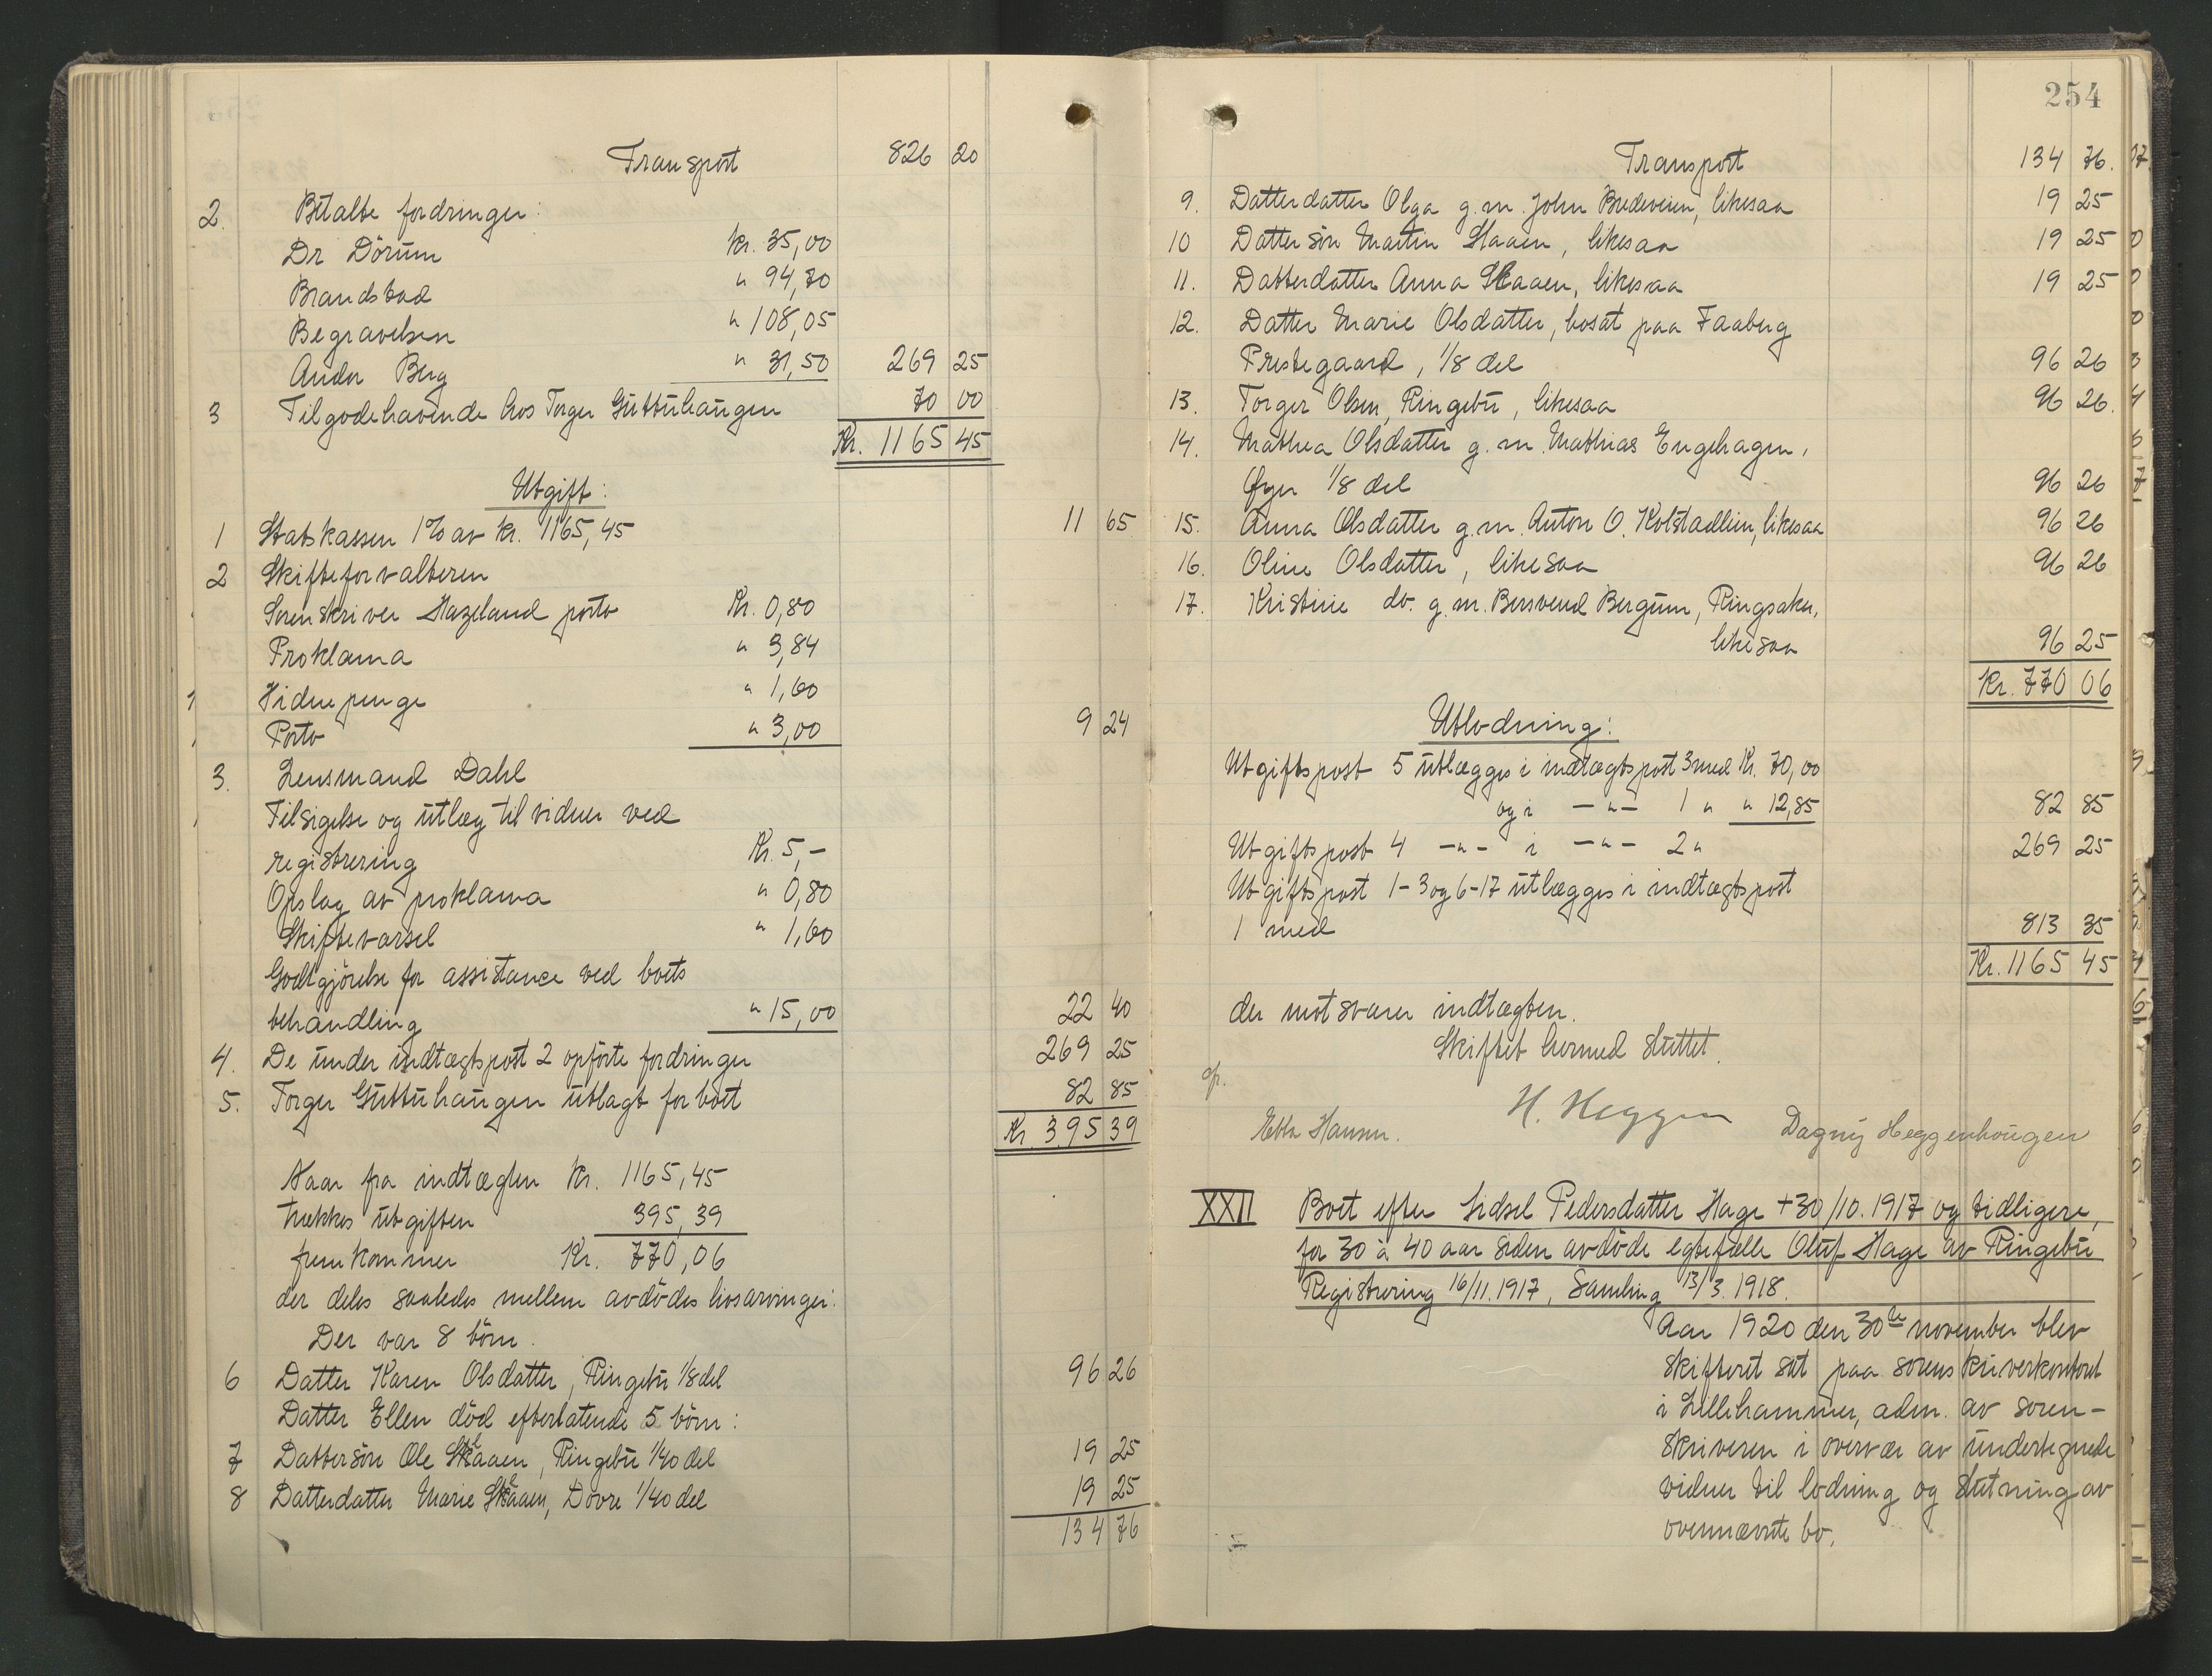 Transport 826 20
2. Betalte fordringer:
Dr Dörum Kr. 35,00
Brandstad " 94,70
Begravelsen " 108,05
Ander Berg " 31,50 269 25
3 Tilgodehavende hos Torger Guttuhaugen 70 00
Kr. 1165 45
Utgift:
1 Statskassen 1% av kr. 1165,45 11 65
2 Skifteforvalteren
Sorenskriver Hazeland porto Kr. 0,80
Proklama " 3,84
Vidnepenge " 1,60
Porto " 3,00 9 24
3. Lensmand Dahl
Tilsigelse og utlæg til vidner ved
registrering Kr. 5,-
Opslag av proklama " 0,80
Skiftevarsel " 1,60
Godtgjörelse for assistance ved boets
behandling " 15,00 22 40
4. De under indtægtspost 2 opförte fordringer 269 25
5. Torger Guttuhaugen utlagt for boet 82 85
Kr. 395 39
Naar fra indtægten Kr. 1165,45
trækkes utgiften 395,39
fremkommer Kr. 770,06
der deles saaledes mellem avdödes livsarvinger:
Der var 8 börn.
6 Datter Karen Olsdatter, Ringebu 1/8 del 96 26
Datter Ellen död efterlatende 5 börn:
7 Dattersön Ole Skaaen, Ringebu 1/40 del 19 25
8 Datterdatter Marie Skaaen, Dovre 1/40 del 19 25
134 76
254
Transport 134 76.
9. Datterdatter Olga g.m. John Bredeveien, likesaa 19 25
10 Dattersön Martin Staaen, likesaa 19 25
11. Datterdatter Anna Skaaen, likesaa 19 25
12. Datter Marie Olsdatter, bosat paa Faaberg
Prestegaard, 1/8 del 96 26
13. Torger Olsen, Ringebu, likesaa 96 26.
14. Mathea Olsdatter g.m. Mathias Engehagen,
Øyer 1/8 del 96 26
15. Anna Olsdatter g.m. Anton O. Kolstadlien, likesaa 96 26
16. Oline Olsdatter, likesaa 96 26
17. Kristine do. g.m. Bersvend Bergum, Ringsaker,
likesaa 96 25
Kr. 770 06
Utlodning:
Utgiftspost 5 utlægges i indtægtspost 3 med Kr. 70,00
og i -"- 1 " " 12,85 82 85
Utgiftspost 4 -"- i -"- 2 " 269 25
Utgiftspost 1-3 og 6-17 utlægges i indtægtspost
1 med 813 35
Kr. 1165 45
der motsvarer indtægten.
Skiftet hermed sluttet.
H. Heggen
Ebba Hansen. Dagny Heggenhougen
XXII Boet efter Sidsel Pedersdatter Hage + 30/10. 1917 og tidligere,
for 30 à 40 aar siden avdöde egtefælle Oluf Hage av Ringebu
Registrering 16/11. 1917, Samling 13/3. 1918.
Aar 1920 den 30te november blev
skifteret sat paa sorenskriverkontoret
i Lillehammer, adm. av soren-
skriveren i overvær av undertegnede
vidner til lodning og slutning av
ovennævnte bo.